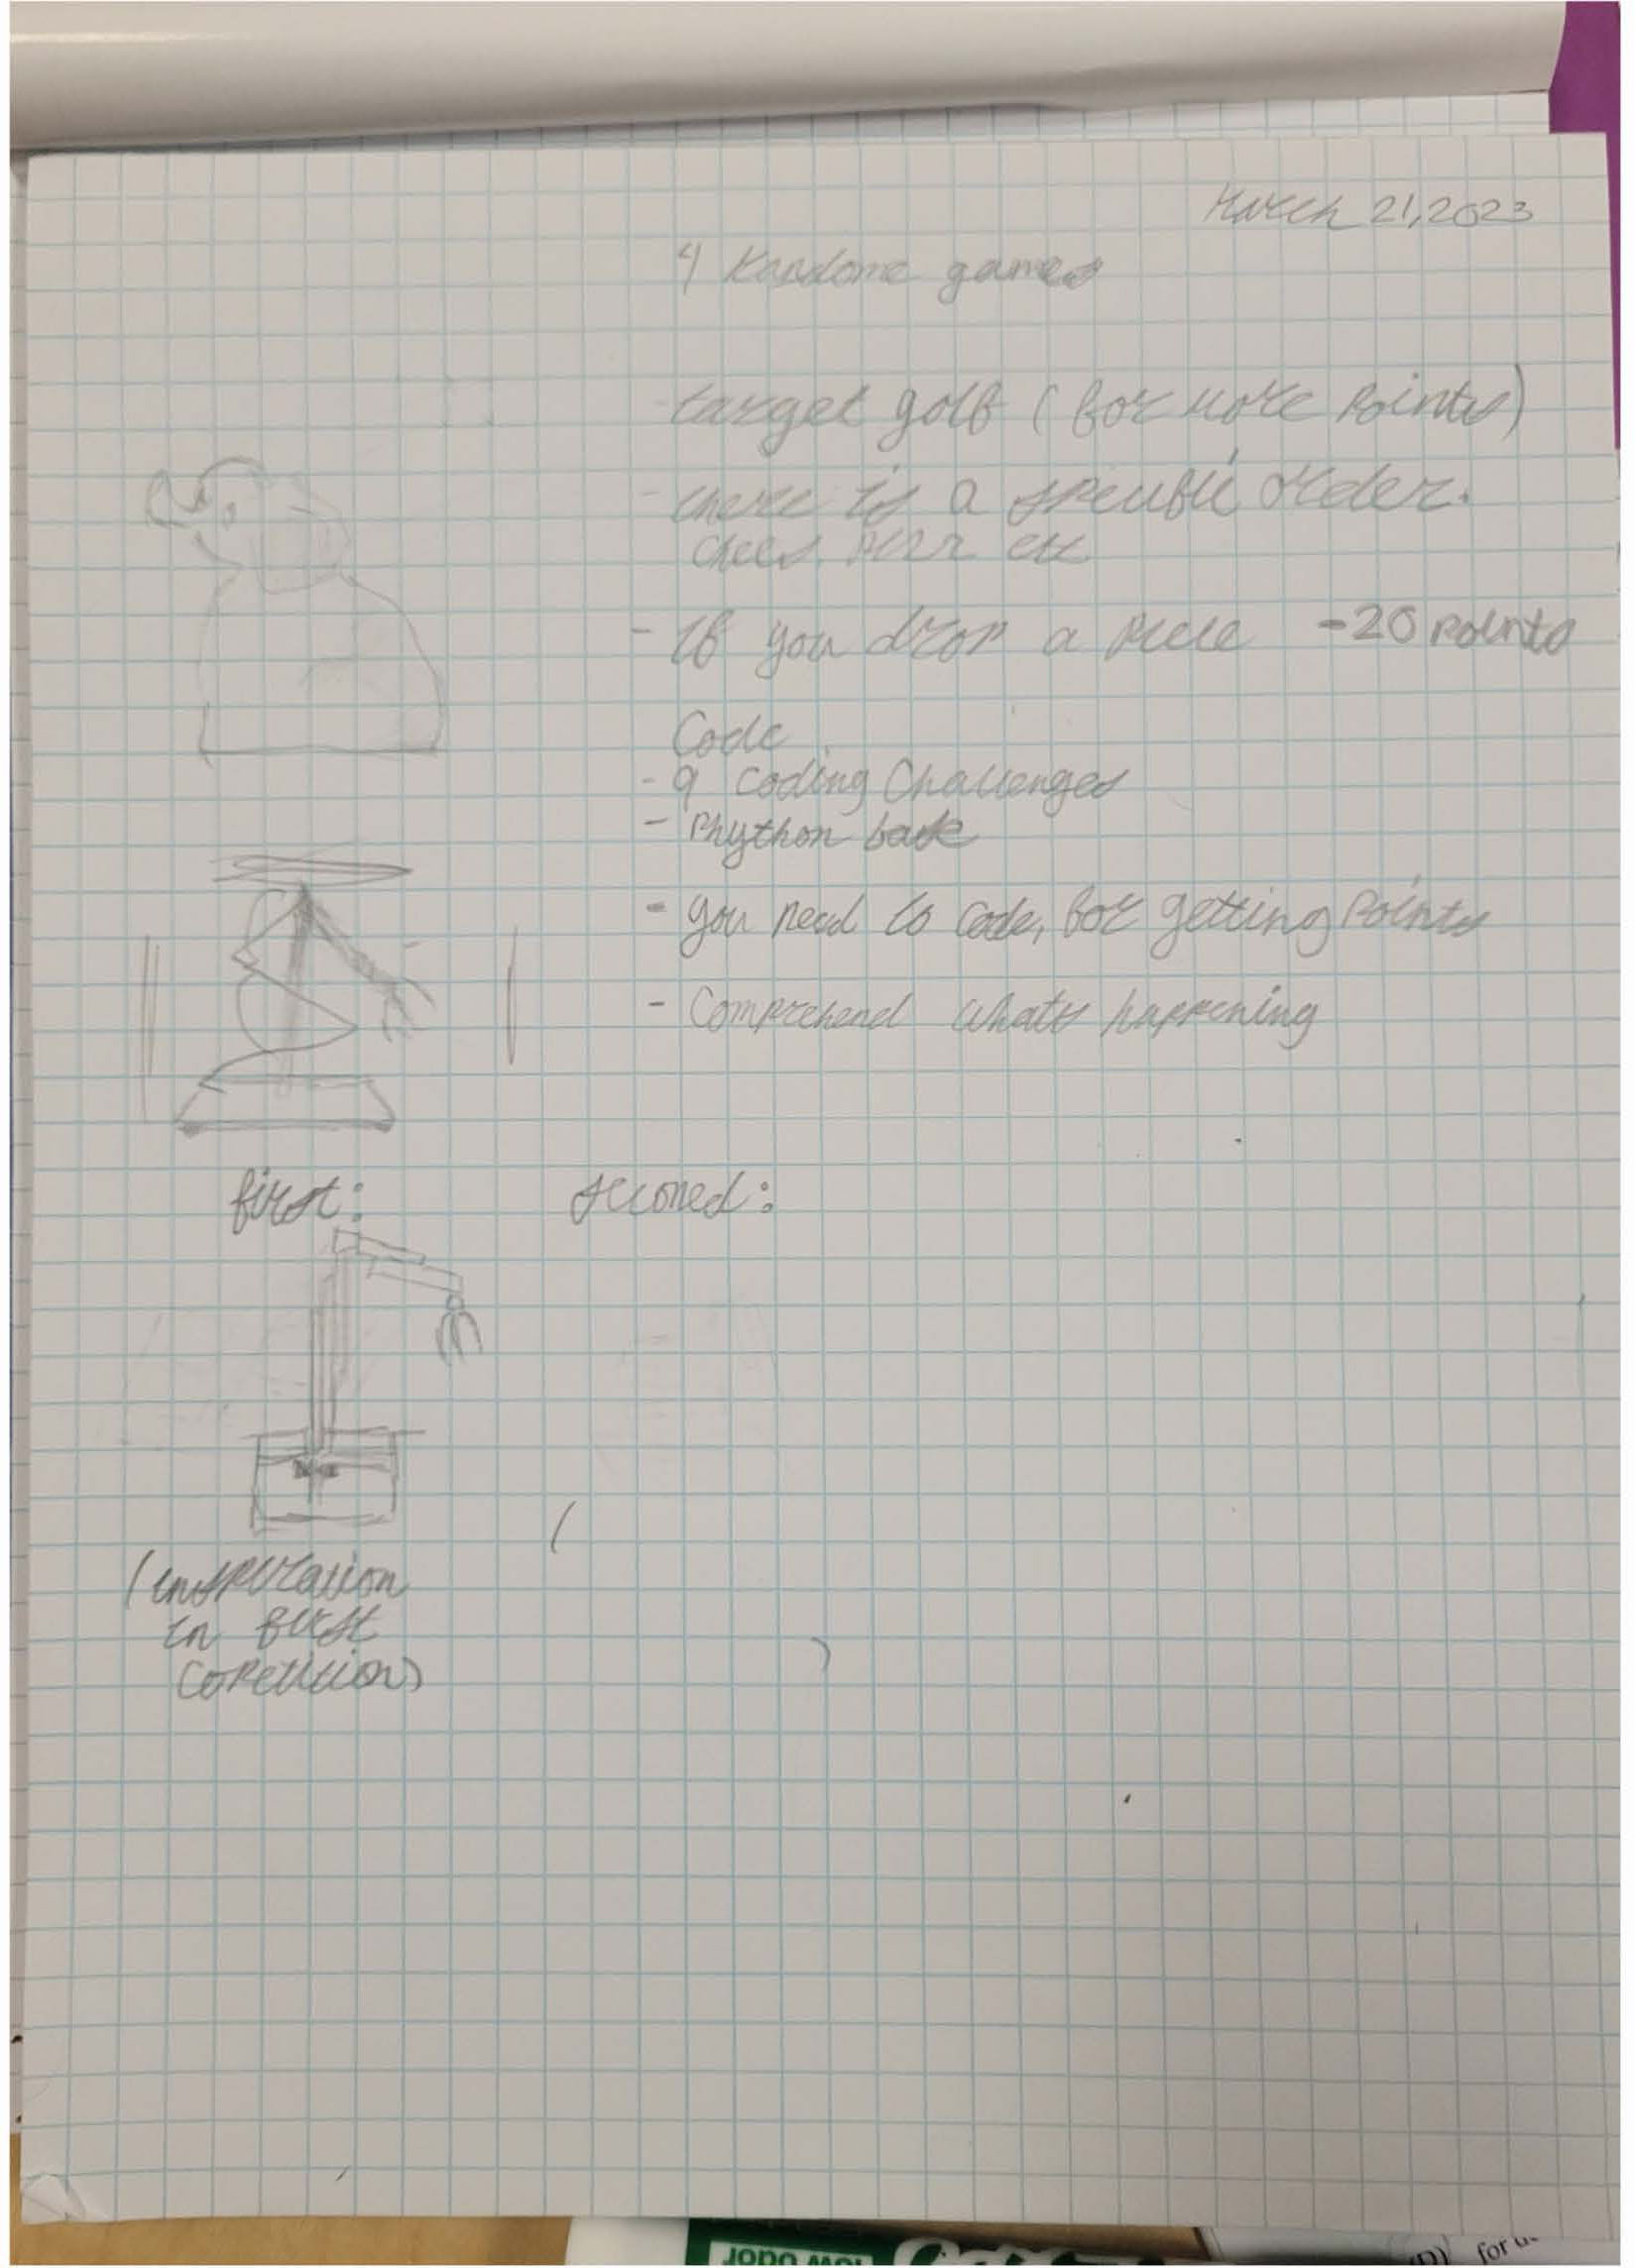 March 21, 2023
4 Randome games
- target golf (for more points)
- there is a specific order.
- If you drop a piece -20 points
Code
- 9 coding Challenges
- Phython
- you need to code, for getting points
- Comprehend whats happening
first: seconed:
(inspiration
in first
Copetition)
low odor
for